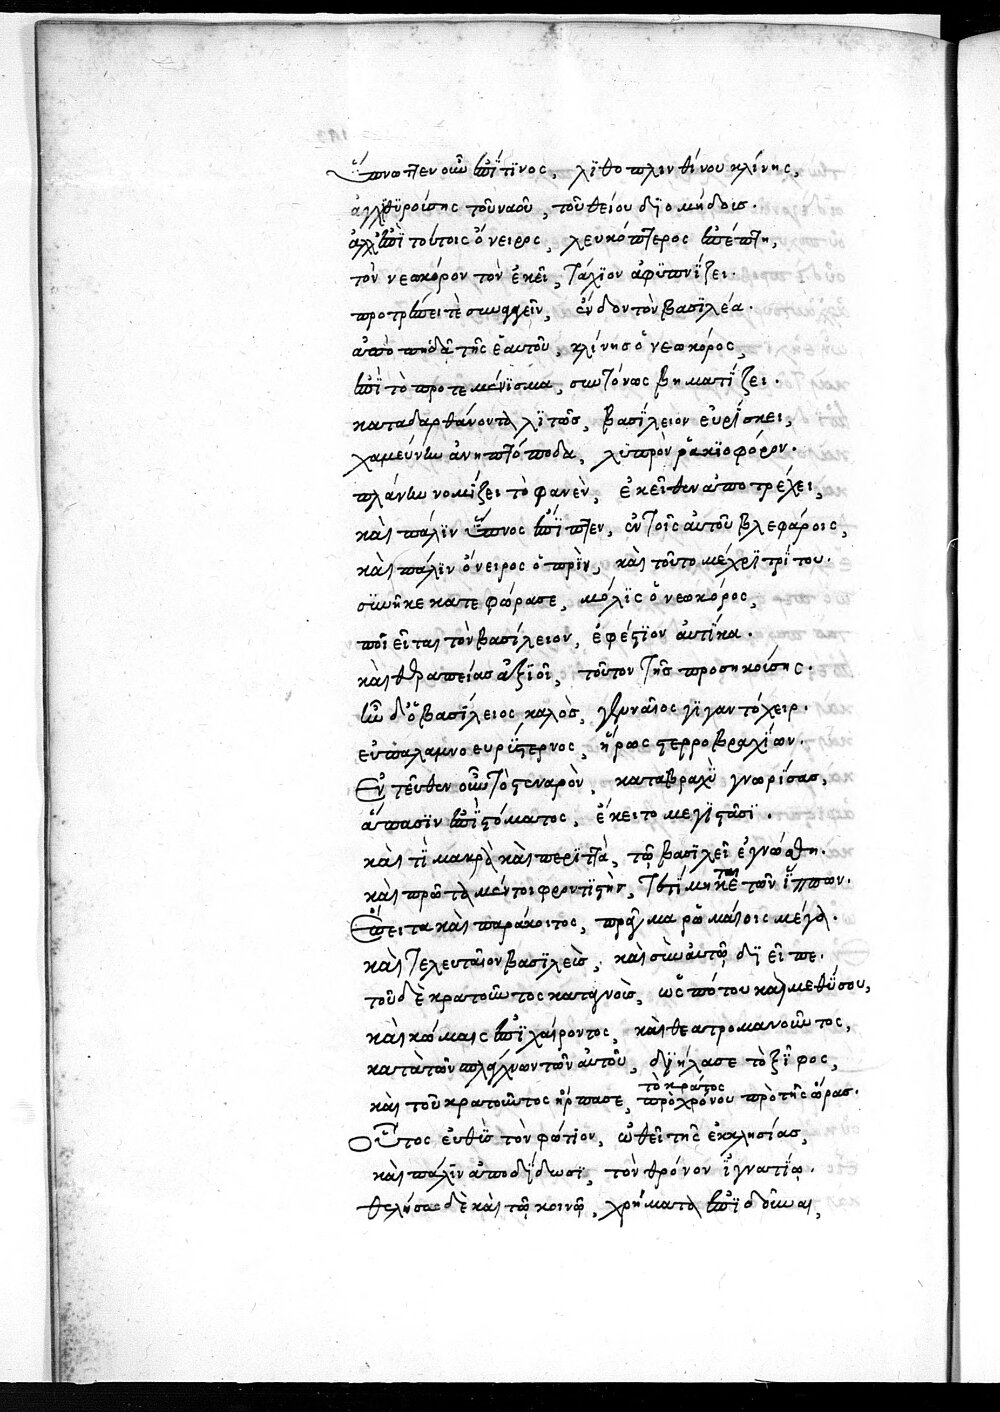 ὕπνωττεν οὖν ἐπί τινος, λιθοπλινθίνου κλίνης,
ἀγχιθυροίσης τοῦ ναοῦ, τοῦ θείου Διομήδοις.
ἀλλ' ἐπὶ τούτοις ὄνειρος, λευκόπτερος ἐπέπτη,
τὸν νεωκόρον τὸν ἐκεῖ, τάχιον ἀφυπνίζει.
προτρέπει τὲ συναγαγεῖν, ἔνδον τὸν βασιλέα.
ἀποπηδᾶ τῆς ἑαυτοῦ, κλίνης ὁ νεωκόρος,
ἐπὶ τὸ προτεμένισμα, συντόνως βηματίζει.
καταδαρθάνοντα λιτῶς, βασίλειον εὑρίσκει,
χαμεύνην ἀνηπτόποδα, λυπρὸν ῥακιοφόρον.
πλάνην νομίζει τὸ φανὲν, ἐκεῖθεν ἀποτρέχει,
καὶ πάλιν ὕπνος ἐπίπτεν, ἐν τοῖς αὐτοῦ βλεφάροις,
καὶ πάλιν ὄνειρος ὁ πρὶν, καὶ τοῦτο μέχρι τρίτου.
συνῆκε κατεφώρασε, μόλις ὁ νεωκόρος,
ποιεῖται τὸν βασίλειον, ἐφέστιον αὐτίκα.
καὶ θεραπείας ἀξιοῖ, τοῦτον τῆς προσηκοίσης.
ἦν δ' ὁ βασίλειος καλὸς, γενναῖος γιγαντόχειρ.
εὐπάλαμνος εὐρύστερνος, ἥρως στερροβραχίων.
Ἐντεῦθεν οὖν τὸ στεναρὸν, καταβραχὺ γνωρίσας,
ἅπασιν ἐπὶ στόματος, ἔκειτο μεγιστᾶσι.
καὶ τί μακρὰ καὶ περιττὰ, τῷ βασιλεῖ ἐγνώσθη.
καὶ πρῶτα μέντοι φροντιστὴς, τῶν ἵππων.
Ἔπειτα καὶ παράκοιτος, πρᾶγμα ῥωμαίοις μέγα.
καὶ τελευταῖον βασιλεὺς, καὶ σὺν αὐτῷ διεῖπε.
τοῦ δὲ κρατοῦντος καταγνοὺς, ὡς πότου καὶ μεθύσου,
καὶ κώμαις ἐπιχαίροντος, καὶ θεατρομανοῦντος,
κατὰ τῶν σπλάγχνων τῶν αὐτοῦ, διήλασε τὸ ξίφος,
καὶ τοῦ κρατοῦντος ἥρπασε, τὸ κράτος πρὸ χρόνου πρὸ τῆς ὥρας.
Οὗτος εὐθὺς τὸν φώτιον, ὠθεῖ τῆς ἐκκλησίας,
καὶ πάλιν ἀποδίδωσι, τὸν θρόνον ἰγνατίῳ.
θελήσας δὲ καὶ τῷ κοινῷ, χρήματα ἐπιδοῦναι,